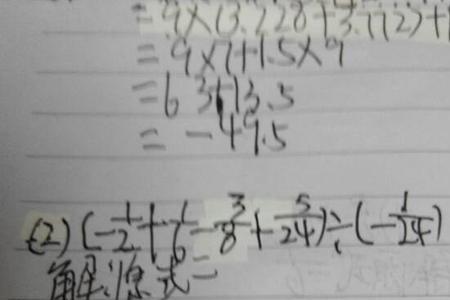 = 9×(3.228+3.772)+
= 9×7+1.5×9
= 63+13.5
= -49.5
(2) (-1/2+1/6-3/8+5/24)÷(-1/24)
解:原式=